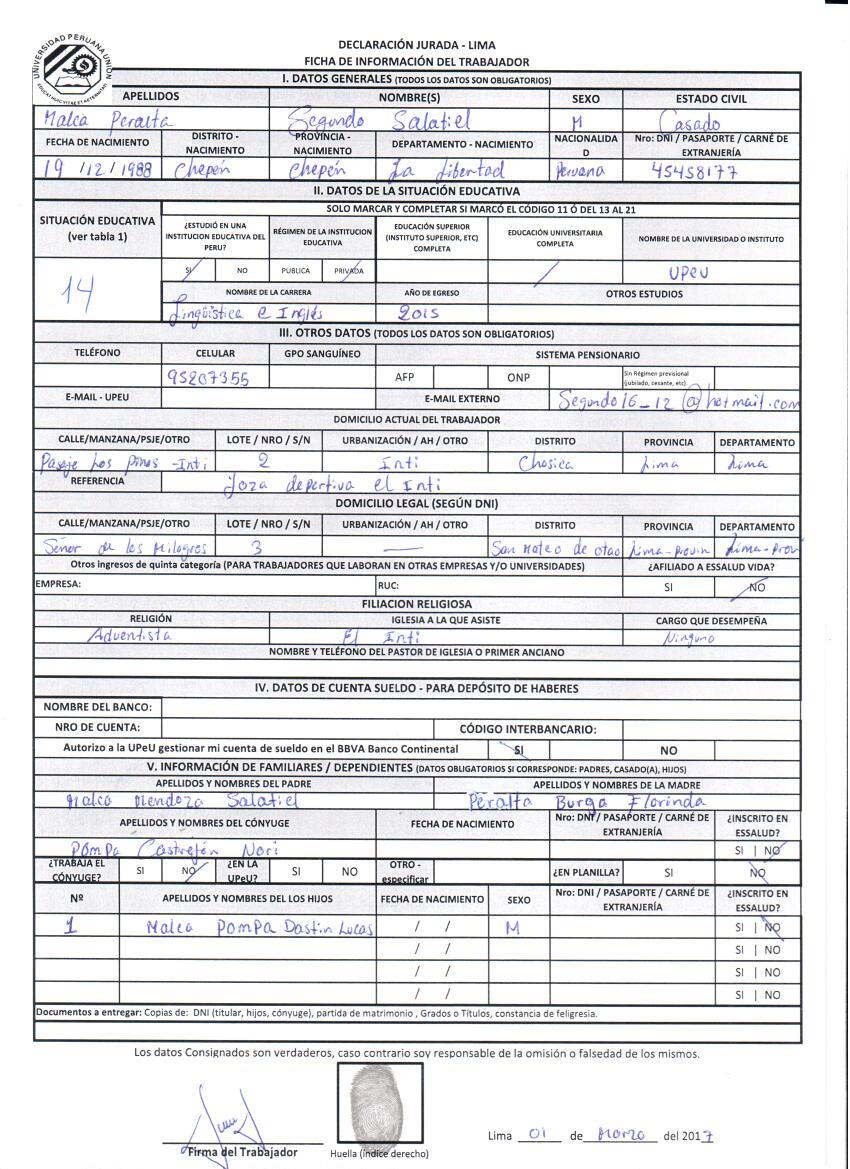 UNIVERSIDAD PERUANA UNION
DECLARACIÓN JURADA - LIMA
FICHA DE INFORMACIÓN DEL TRABAJADOR
I. DATOS GENERALES (TODOS LOS DATOS SON OBLIGATORIOS)
APELLIDOS NOMBRE(S) SEXO ESTADO CIVIL
Malca Peralta Segundo Salatiel M Casado
FECHA DE NACIMIENTO DISTRITO - NACIMIENTO PROVINCIA - NACIMIENTO DEPARTAMENTO - NACIMIENTO NACIONALIDAD Nro: DNI / PASAPORTE / CARNÉ DE EXTRANJERÍA
19 / 12 / 1988 Chepén Chepén La Libertad Peruana 45458177
II. DATOS DE LA SITUACIÓN EDUCATIVA
SITUACIÓN EDUCATIVA (ver tabla 1)
SOLO MARCAR Y COMPLETAR SI MARCÓ EL CÓDIGO 11 Ó DEL 13 AL 21
¿ESTUDIÓ EN UNA INSTITUCION EDUCATIVA DEL PERU? RÉGIMEN DE LA INSTITUCION EDUCATIVA EDUCACIÓN SUPERIOR (INSTITUTO SUPERIOR, ETC) COMPLETA EDUCACIÓN UNIVERSITARIA COMPLETA NOMBRE DE LA UNIVERSIDAD O INSTITUTO
14 SI NO PUBLICA PRIVADA UPeU
NOMBRE DE LA CARRERA AÑO DE EGRESO OTROS ESTUDIOS
Lingüística e Inglés 2015
III. OTROS DATOS (TODOS LOS DATOS SON OBLIGATORIOS)
TELÉFONO CELULAR GPO SANGUÍNEO SISTEMA PENSIONARIO
95207355 AFP ONP Sin Régimen previsional (jubilado, cesante, etc).
E-MAIL - UPEU E-MAIL EXTERNO Segundo16_12@hotmail.com
DOMICILIO ACTUAL DEL TRABAJADOR
CALLE/MANZANA/PSJE/OTRO LOTE / NRO / S/N URBANIZACIÓN / AH / OTRO DISTRITO PROVINCIA DEPARTAMENTO
Pasaje Los Pinos - Inti 2 Inti Chosica Lima Lima
REFERENCIA Loza deportiva el Inti
DOMICILIO LEGAL (SEGÚN DNI)
CALLE/MANZANA/PSJE/OTRO LOTE / NRO / S/N URBANIZACIÓN / AH / OTRO DISTRITO PROVINCIA DEPARTAMENTO
Señor de los Milagros 3 — San Mateo de otao Lima-Provin Lima-Prov
Otros ingresos de quinta categoría (PARA TRABAJADORES QUE LABORAN EN OTRAS EMPRESAS Y/O UNIVERSIDADES) ¿AFILIADO A ESSALUD VIDA?
EMPRESA: RUC: SI NO
FILIACION RELIGIOSA
RELIGIÓN IGLESIA A LA QUE ASISTE CARGO QUE DESEMPEÑA
Adventista El Inti Ninguno
NOMBRE Y TELÉFONO DEL PASTOR DE IGLESIA O PRIMER ANCIANO
IV. DATOS DE CUENTA SUELDO - PARA DEPÓSITO DE HABERES
NOMBRE DEL BANCO:
NRO DE CUENTA: CÓDIGO INTERBANCARIO:
Autorizo a la UPeU gestionar mi cuenta de sueldo en el BBVA Banco Continental SI NO
V. INFORMACIÓN DE FAMILIARES / DEPENDIENTES (DATOS OBLIGATORIOS SI CORRESPONDE: PADRES, CASADO(A), HIJOS)
APELLIDOS Y NOMBRES DEL PADRE APELLIDOS Y NOMBRES DE LA MADRE
Malca Mendoza Salatiel Peralta Burga Florinda
APELLIDOS Y NOMBRES DEL CÓNYUGE FECHA DE NACIMIENTO Nro: DNI / PASAPORTE / CARNÉ DE EXTRANJERÍA ¿INSCRITO EN ESSALUD?
Pompa Castrejón Nori SI | NO
¿TRABAJA EL CÓNYUGE? SI NO ¿EN LA UPeU? SI NO OTRO - especificar ¿EN PLANILLA? SI NO
Nº APELLIDOS Y NOMBRES DEL LOS HIJOS FECHA DE NACIMIENTO SEXO Nro: DNI / PASAPORTE / CARNÉ DE EXTRANJERÍA ¿INSCRITO EN ESSALUD?
1 Malca Pompa Dastin Lucas / / M SI | NO
/ / SI | NO
/ / SI | NO
/ / SI | NO
Documentos a entregar: Copias de: DNI (titular, hijos, cónyuge), partida de matrimonio , Grados o Títulos, constancia de feligresia.
Los datos Consignados son verdaderos, caso contrario soy responsable de la omisión o falsedad de los mismos.
Lima 01 de Marzo del 2017
Firma del Trabajador Huella (índice derecho)